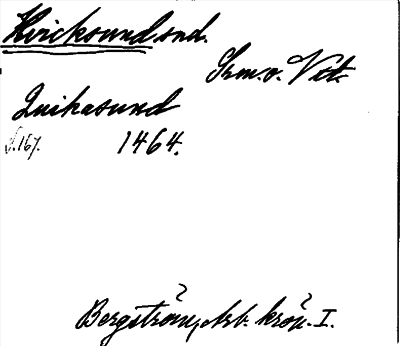 Hvicksund snd.
Srm. o. Vst.
Quikasund
S. 167. 1464.
Bergström, Arb. krön. I.